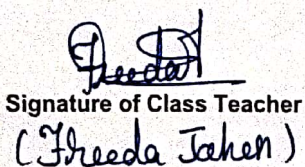 Freeda
Signature of Class Teacher
(Freeda Jahen)